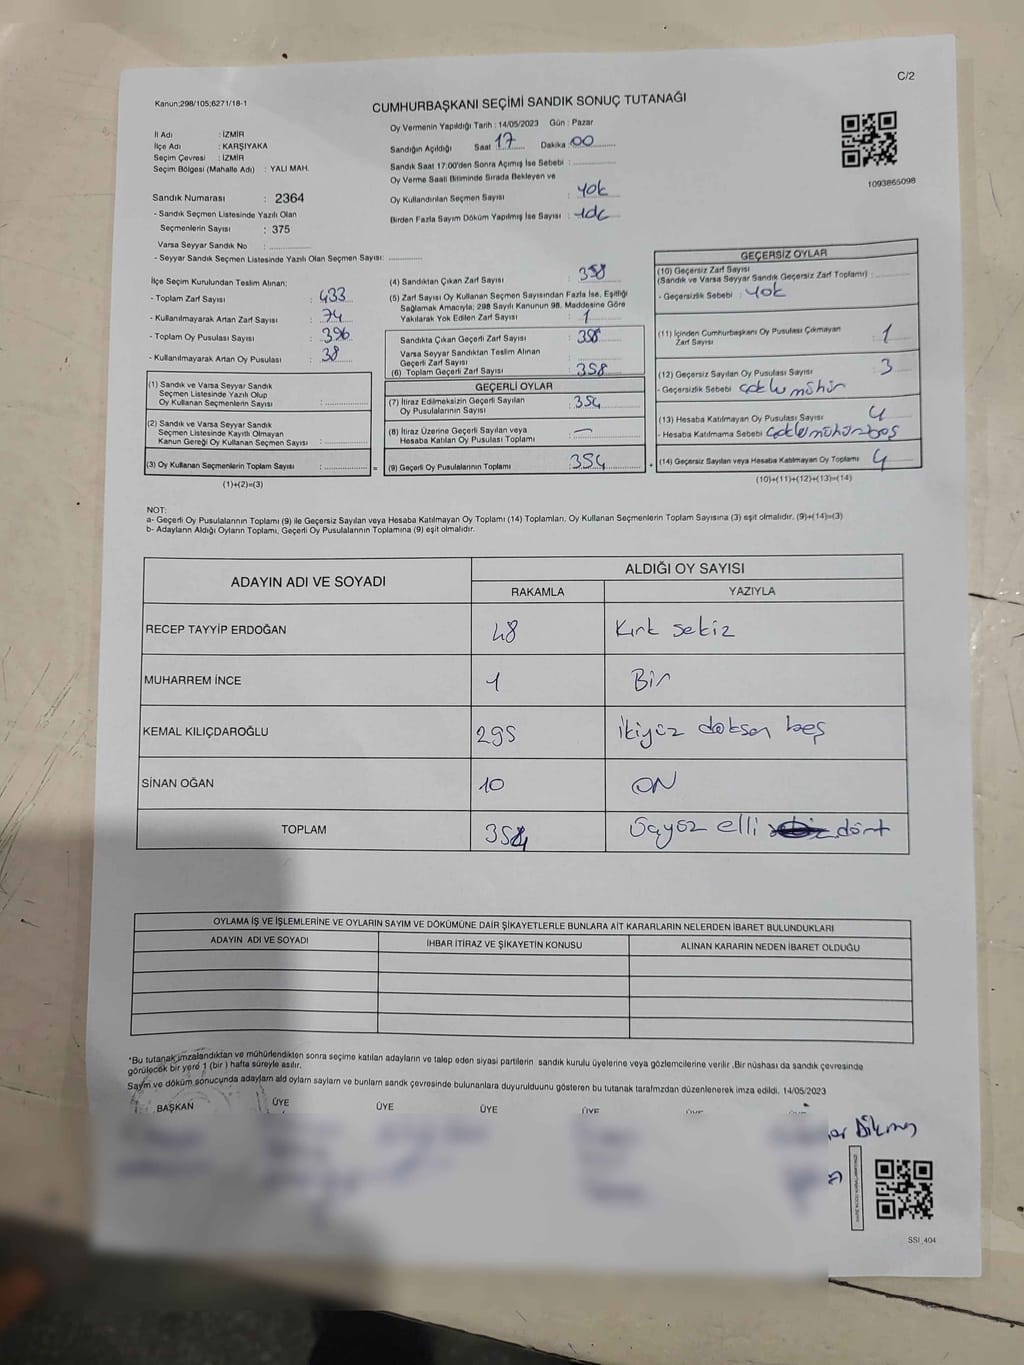 C/2
Kanun:298/105;6271/18-1
CUMHURBAŞKANI SEÇİMİ SANDIK SONUÇ TUTANAĞI
İl Adı : İZMİR
İlçe Adı : KARŞIYAKA
Seçim Çevresi : İZMİR
Seçim Bölgesi (Mahalle Adı) : YALI MAH.
Sandık Numarası : 2364
- Sandık Seçmen Listesinde Yazılı Olan
Seçmenlerin Sayısı : 375
Varsa Seyyar Sandık No : ..............
- Seyyar Sandık Seçmen Listesinde Yazılı Olan Seçmen Sayısı: ............
Oy Vermenin Yapıldığı Tarih : 14/05/2023 Gün : Pazar
Sandığın Açıldığı Saat 17 Dakika 00
Sandık Saat 17:00'den Sonra Açımış İse Sebebi : ..............
Oy Verme Saati Bitiminde Sırada Bekleyen ve
Oy Kullandırılan Seçmen Sayısı : Yok
Birden Fazla Sayım Döküm Yapılmış İse Sayısı :
1093865098
İlçe Seçim Kurulundan Teslim Alınan;
- Toplam Zarf Sayısı : 433
- Kullanılmayarak Artan Zarf Sayısı : 74
- Toplam Oy Pusulası Sayısı : 396
- Kullanılmayarak Artan Oy Pusulası : 38
(1) Sandık ve Varsa Seyyar Sandık
Seçmen Listesinde Yazılı Olup
Oy Kullanan Seçmenlerin Sayısı : ..............
(2) Sandık ve Varsa Seyyar Sandık
Seçmen Listesinde Kayıtlı Olmayan
Kanun Gereği Oy Kullanan Seçmen Sayısı : ..............
(3) Oy Kullanan Seçmenlerin Toplam Sayısı : .............. =
(1)+(2)=(3)
(4) Sandıktan Çıkan Zarf Sayısı : 358
(5) Zarf Sayısı Oy Kullanan Seçmen Sayısından Fazla İse, Eşitliği
Sağlamak Amacıyla; 298 Sayılı Kanunun 98. Maddesine Göre
Yakılarak Yok Edilen Zarf Sayısı : 1
Sandıkta Çıkan Geçerli Zarf Sayısı : 358
Varsa Seyyar Sandıktan Teslim Alınan
Geçerli Zarf Sayısı : ..............
(6) Toplam Geçerli Zarf Sayısı : 358
GEÇERLİ OYLAR
(7) İtiraz Edilmeksizin Geçerli Sayılan
Oy Pusulalarının Sayısı : 354
(8) İtiraz Üzerine Geçerli Sayılan veya
Hesaba Katılan Oy Pusulası Toplamı : —
(9) Geçerli Oy Pusulalarının Toplamı : 354 +
GEÇERSİZ OYLAR
(10) Geçersiz Zarf Sayısı
(Sandık ve Varsa Seyyar Sandık Geçersiz Zarf Toplamı) : ..........
- Geçersizlik Sebebi : Yok
(11) İçinden Cumhurbaşkanı Oy Pusulası Çıkmayan
Zarf Sayısı : 1
(12) Geçersiz Sayılan Oy Pusulası Sayısı : 3
- Geçersizlik Sebebi : mühür
(13) Hesaba Katılmayan Oy Pusulası Sayısı : 4
- Hesaba Katılmama Sebebi :
(14) Geçersiz Sayılan veya Hesaba Katılmayan Oy Toplamı : 4
(10)+(11)+(12)+(13)=(14)
NOT:
a- Geçerli Oy Pusulalarının Toplamı (9) ile Geçersiz Sayılan veya Hesaba Katılmayan Oy Toplamı (14) Toplamları, Oy Kullanan Seçmenlerin Toplam Sayısına (3) eşit olmalıdır. (9)+(14)=(3)
b- Adayların Aldığı Oyların Toplamı, Geçerli Oy Pusulalarının Toplamına (9) eşit olmalıdır.
ADAYIN ADI VE SOYADI ALDIĞI OY SAYISI
RAKAMLA YAZIYLA
RECEP TAYYİP ERDOĞAN 48 Kırk sekiz
MUHARREM İNCE 1 Bir
KEMAL KILIÇDAROĞLU 295 İkiyüz doksan beş
SİNAN OĞAN 10 ON
TOPLAM 354 Üçyüz elli dört
OYLAMA İŞ VE İŞLEMLERİNE VE OYLARIN SAYIM VE DÖKÜMÜNE DAİR ŞİKAYETLERLE BUNLARA AİT KARARLARIN NELERDEN İBARET BULUNDUKLARI
ADAYIN ADI VE SOYADI İHBAR İTİRAZ VE ŞİKAYETİN KONUSU ALINAN KARARIN NEDEN İBARET OLDUĞU
*Bu tutanak imzalandıktan ve mühürlendikten sonra seçime katılan adayların ve talep eden siyasi partilerin sandık kurulu üyelerine veya gözlemcilerine verilir .Bir nüshası da sandık çevresinde
görülecek bir yere 1 (bir ) hafta süreyle asılır.
Sayım ve döküm sonucunda adayların ald oyların sayların ve bunların sandk çevresinde bulunanlara duyurulduunu gösteren bu tutanak tarafmzdan düzenlenerek imza edildi. 14/05/2023
BAŞKAN ÜYE ÜYE ÜYE ÜYE
SSI_404